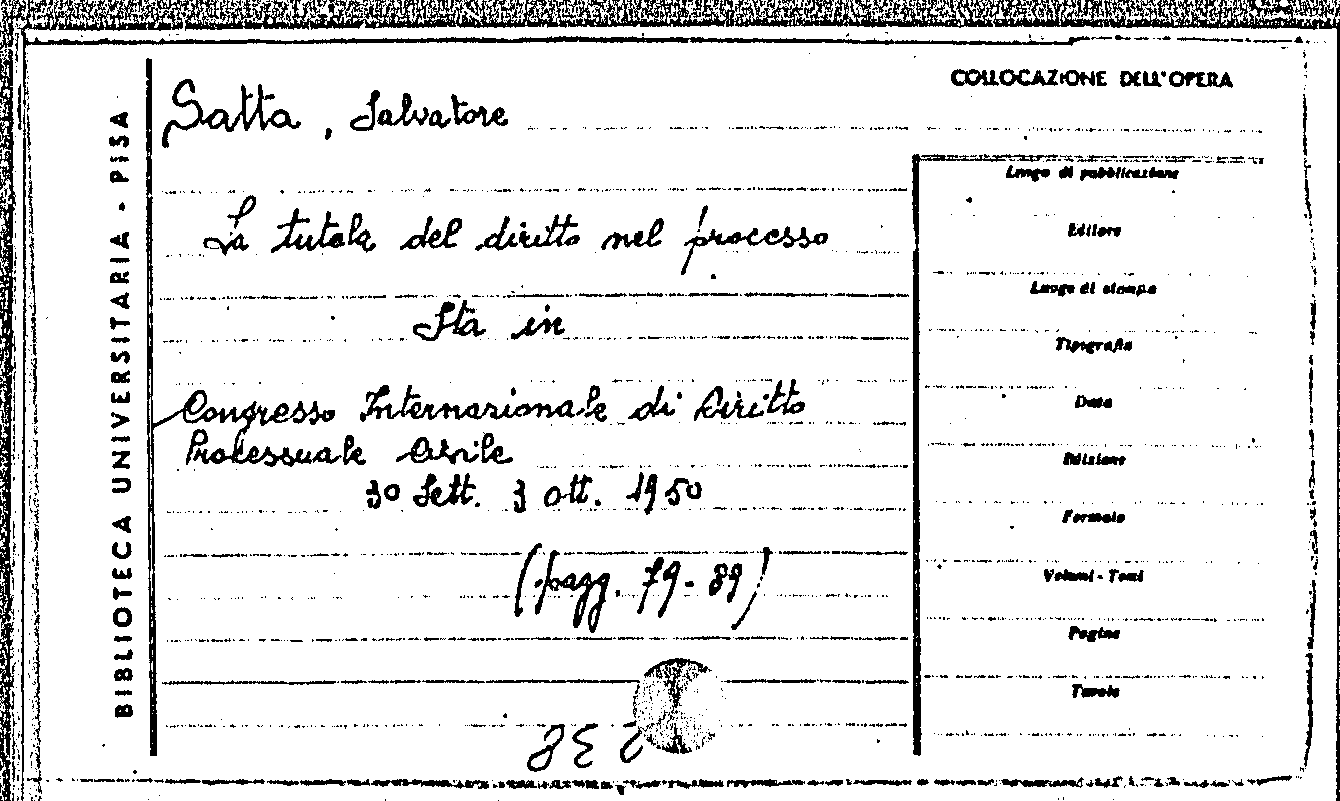 BIBLIOTECA UNIVERSITARIA - PISA
Satta, Salvatore
La tutela del diritto nel processo
Sta in
Congresso Internazionale di Diritto
Processuale Civile
30 Sett. 3 ott. 1950
(pagg. 79-89)
COLLOCAZIONE DELL'OPERA
Luogo di pubblicazione
Editore
Luogo di stampa
Tipografia
Data
Edizione
Formato
Volumi - Tomi
Pagine
Tavole